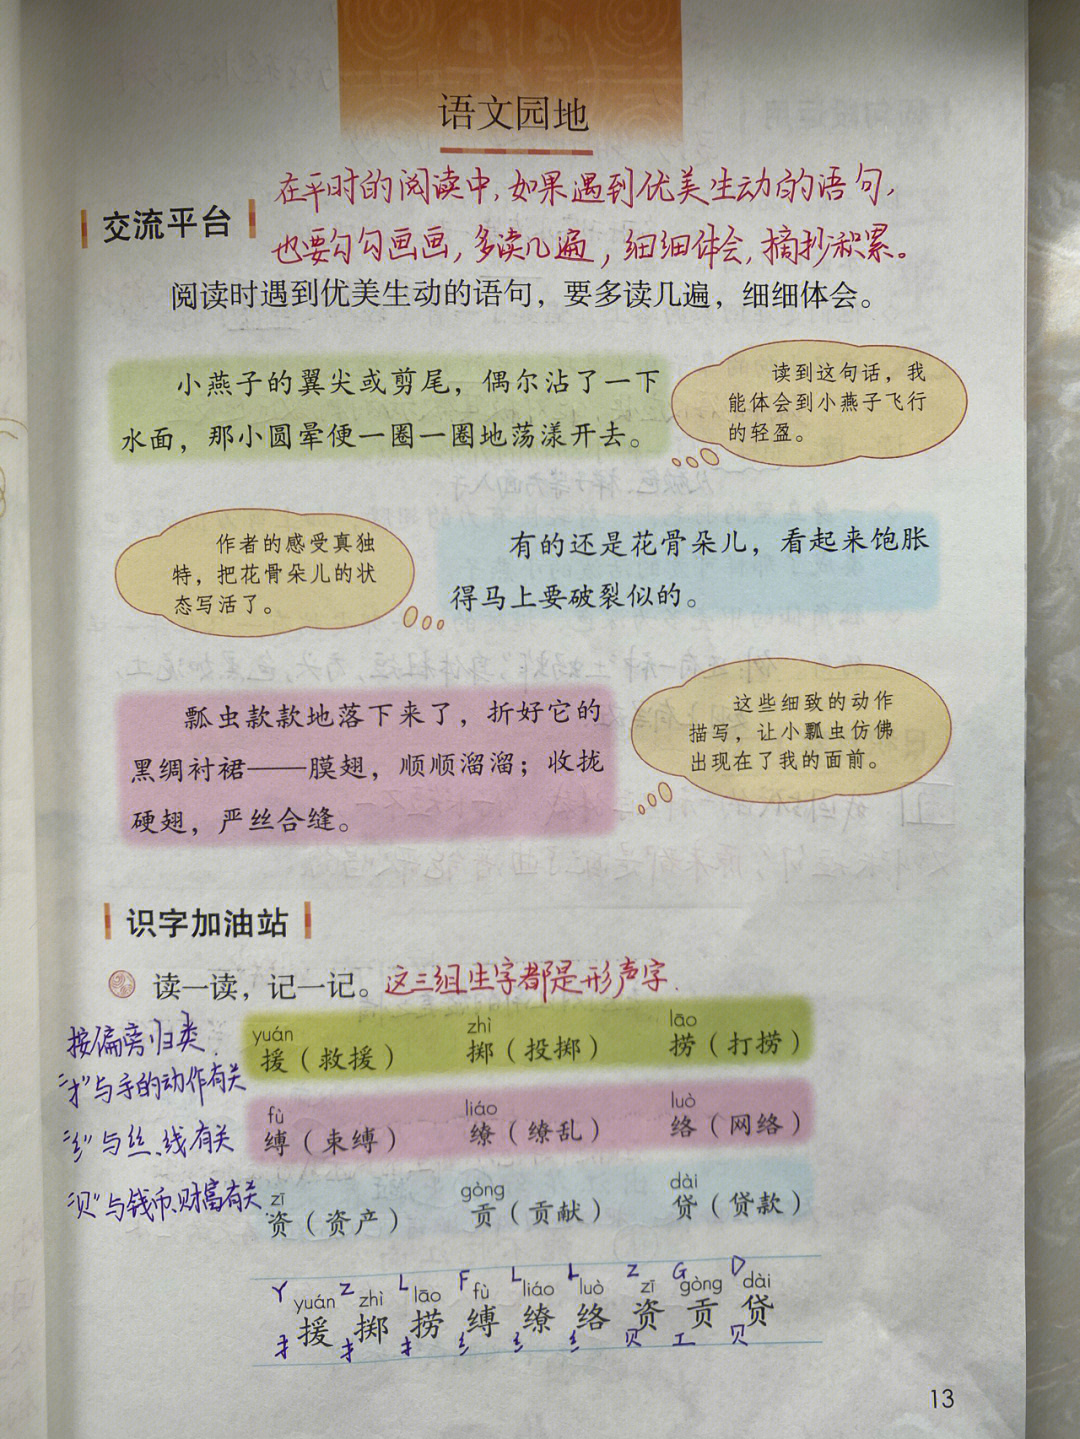 语文园地
在平时的阅读中,如果遇到优美生动的语句,
也要勾勾画画,多读几遍,细细体会,摘抄积累。
交流平台
阅读时遇到优美生动的语句，要多读几遍，细细体会。
小燕子的翼尖或剪尾，偶尔沾了一下
水面，那小圆晕便一圈一圈地荡漾开去。
读到这句话，我
能体会到小燕子飞行
的轻盈。
作者的感受真独
特，把花骨朵儿的状
态写活了。
有的还是花骨朵儿，看起来饱胀
得马上要破裂似的。
瓢虫款款地落下来了，折好它的
黑绸衬裙——膜翅，顺顺溜溜；收拢
硬翅，严丝合缝。
这些细致的动作
描写，让小瓢虫仿佛
出现在了我的面前。
识字加油站
读一读，记一记。这三组生字都是形声字.
按偏旁归类.
yuán zhì lāo
援（救援） 掷（投掷） 捞（打捞）
"扌"与手的动作有关
fù liáo luò
缚（束缚） 缭（缭乱） 络（网络）
"纟"与丝、线有关
zī gòng dài
资（资产） 贡（贡献） 贷（贷款）
"贝"与钱币、财富有关.
Y Z L F L L Z G D
yuán zhì lāo fù liáo luò zī gòng dài
援 掷 捞 缚 缭 络 资 贡 贷
扌 扌 扌 纟 纟 纟 贝 工 贝
13